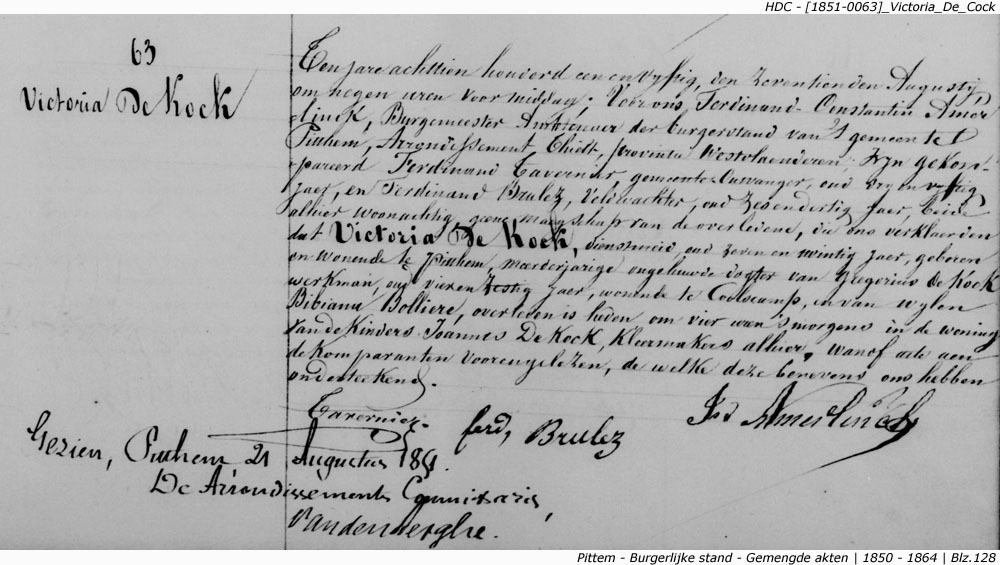 HDC - [1851-0063]_Victoria_De_Cock
63
Victoria De Kock
Ten jare achttien honderd een en vyftig, den zeventienden Augusty
om negen uren voormiddag; Voor ons, Ferdinand Constantin Amer-
-linck, Burgemeester Ambtenaer der burgerstand van 't gemeente
Pitthem, Arrondissement Thielt, provintie Westvlaenderen; zyn gekom-
-pareerd Ferdinand Tavernier, gemeente Ontvanger, oud dry en vyftig
jaer, en Ferdinand Brulez, Veldwachter, oud zesendertig Jaer, beide
alhier woonachtig, geene maegschap van de overledene, die ons verklaerden
dat Victoria De Kock, dienstmeid oud zeven en twintig jaer, geboren
en wonende te Pitthem, meerderjarige ongehuwde dogter van Gregorius de Kock
werkman, oud vier en zestig jaer, wonende te Coolscamp, en van wylen
Bibiana Bolliere, overleden is heden om vier uren 's morgens in de wooning
van de kinders Joannes De Kock, Kleermakers alhier, wanof acte aen
de komparanten voorengelezen, de welke deze benevens ons hebben
onderteekend.
Tavernier
ferd, Brulez
Amerlinck
Gezien, Pitthem 21 Augustus 1851.
De Arrondissements Commissaris,
Vandenberghe.
Pittem - Burgerlijke stand - Gemengde akten | 1850 - 1864 | Blz.128